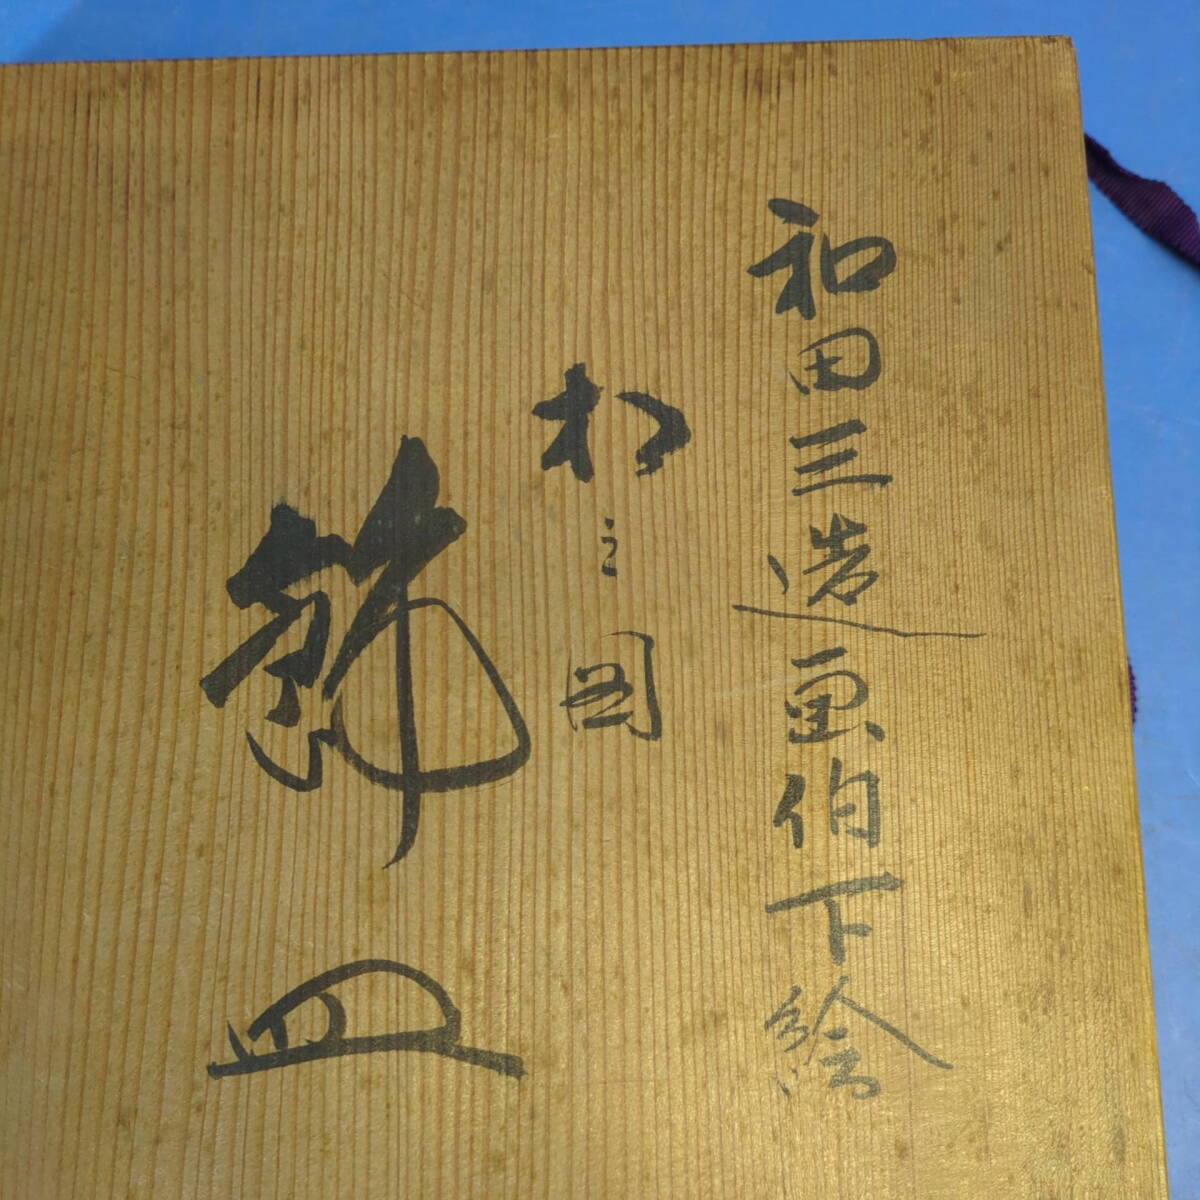 和田三造画伯下絵
松之図
飾皿